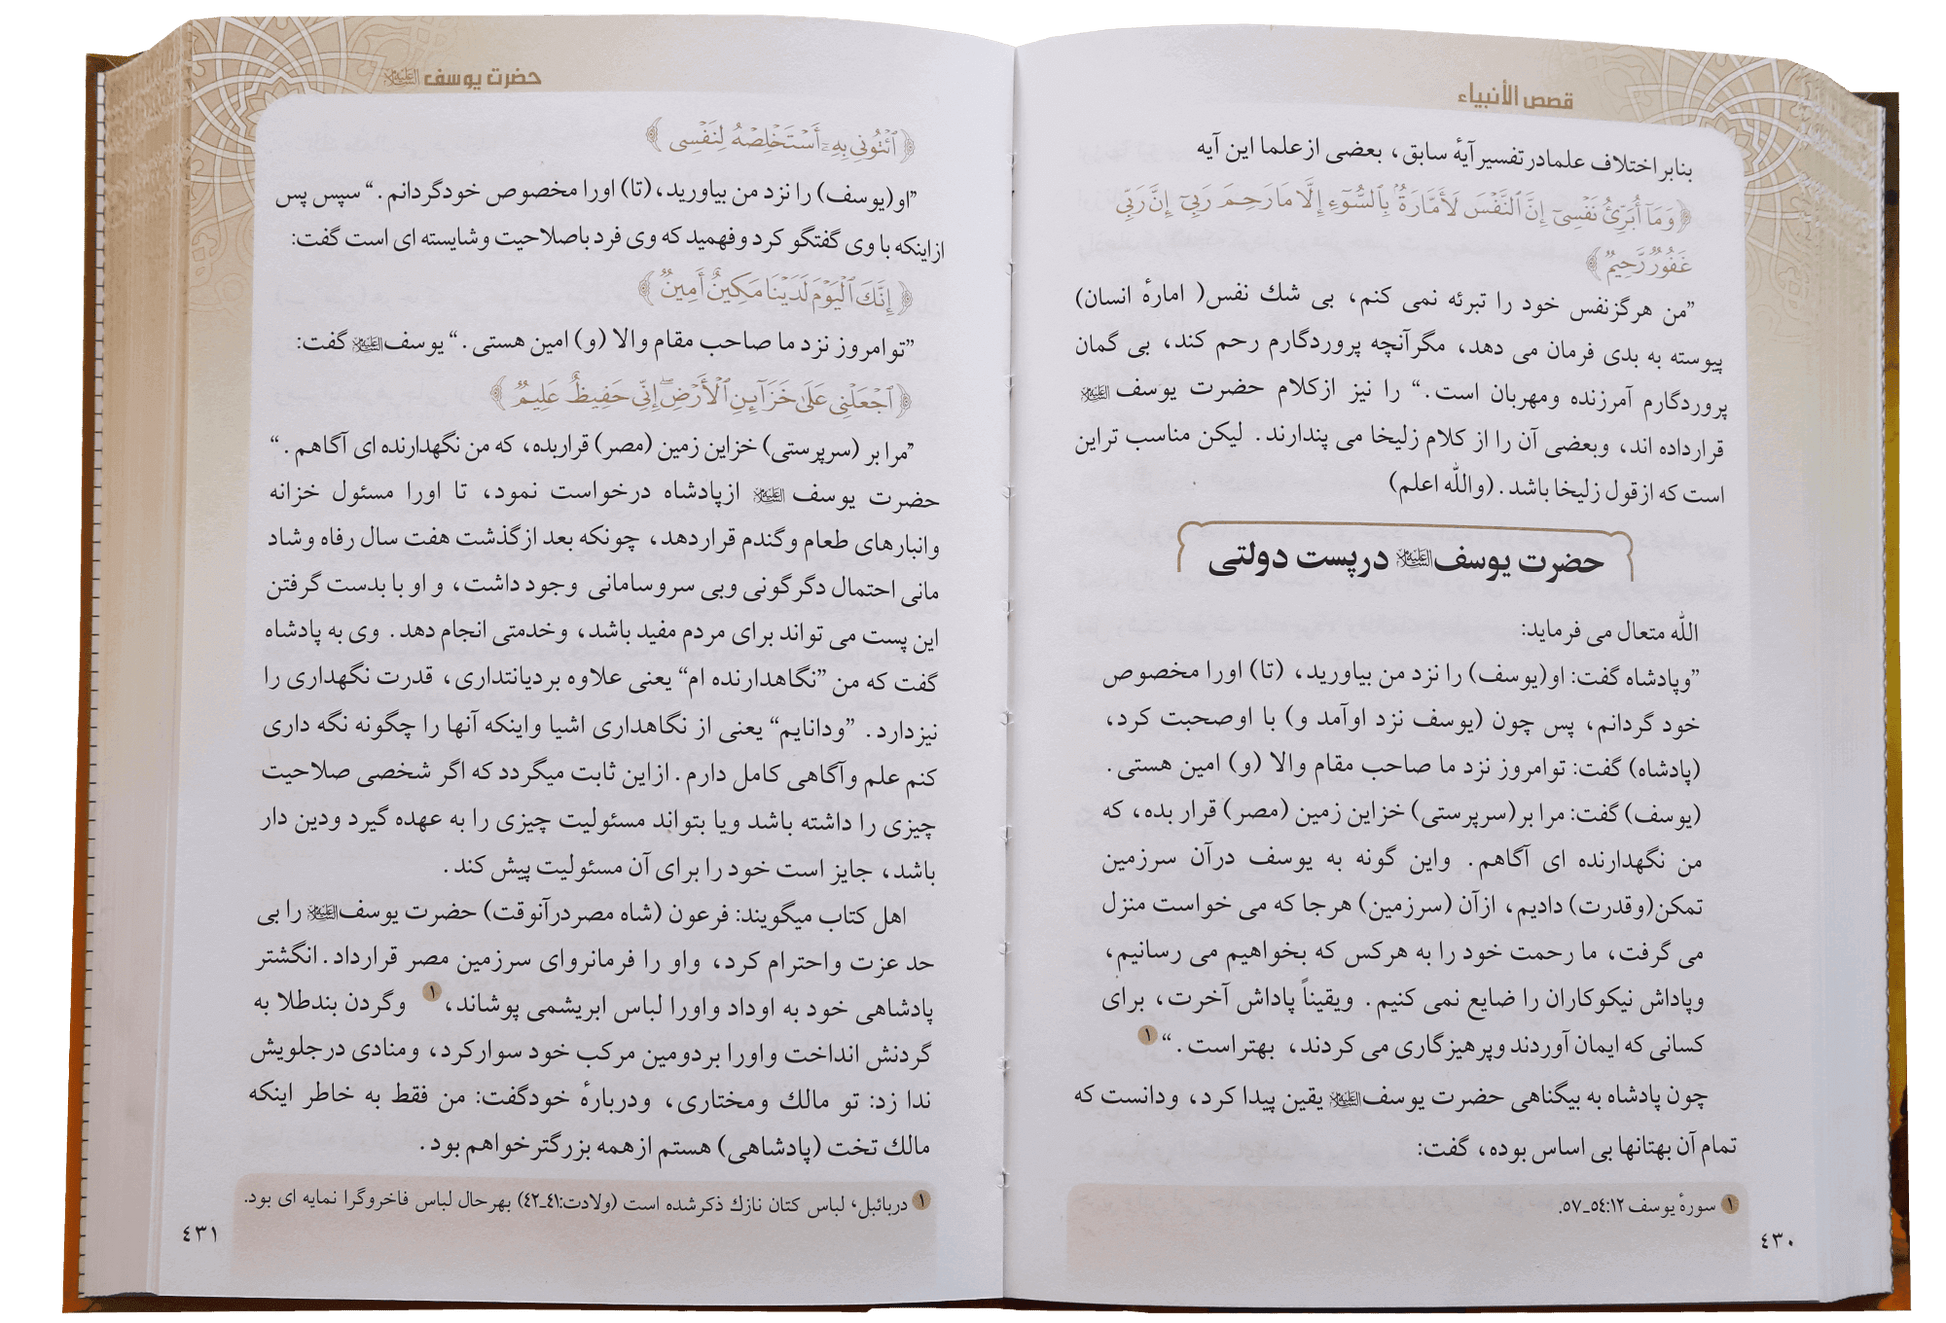 قصص الأنبیاء
بنابر اختلاف علما در تفسیر آیۀ سابق، بعضی از علما این آیه
﴿وَمَآ أُبَرِّئُ نَفۡسِيٓ إِنَّ ٱلنَّفۡسَ لَأَمَّارَةُۢ بِٱلسُّوٓءِ إِلَّا مَا رَحِمَ رَبِّيٓ إِنَّ رَبِّي
غَفُورٞ رَّحِيمٞ﴾
”من هرگزنفس خود را تبرئه نمی کنم، بی شك نفس( امارۀ انسان)
پیوسته به بدی فرمان می دهد، مگرآنچه پروردگارم رحم کند، بی گمان
پروردگارم آمرزنده ومهربان است.“ را نیز ازکلام حضرت یوسف علیه السلام
قرارداده اند، وبعضی آن را از کلام زلیخا می پندارند. لیکن مناسب تراین
است که ازقول زلیخا باشد. (والله اعلم)
حضرت یوسف علیه السلام درپست دولتی
الله متعال می فرماید:
”وپادشاه گفت: او(یوسف) را نزد من بیاورید، (تا) اورا مخصوص
خود گردانم، پس چون (یوسف نزد اوآمد و) با اوصحبت کرد،
(پادشاه) گفت: توامروز نزد ما صاحب مقام والا (و) امین هستی.
(یوسف) گفت: مرا بر(سرپرستی) خزاین زمین (مصر) قرار بده، که
من نگهدارنده ای آگاهم. واین گونه به یوسف درآن سرزمین
تمکن(وقدرت) دادیم، ازآن (سرزمین) هرجا که می خواست منزل
می گرفت، ما رحمت خود را به هرکس که بخواهیم می رسانیم،
وپاداش نیکوکاران را ضایع نمی کنیم. ویقیناً پاداش آخرت، برای
کسانی که ایمان آوردند وپرهیزگاری می کردند، بهتراست.“ ١
چون پادشاه به بیگناهی حضرت یوسف علیه السلام یقین پیدا کرد، ودانست که
تمام آن بهتانها بی اساس بوده، گفت:
١ سورۀ یوسف ١٢:٥٤_٥٧.
٤٣٠
حضرت یوسف علیه السلام
﴿ٱئۡتُونِي بِهِۦٓ أَسۡتَخۡلِصۡهُ لِنَفۡسِي﴾
”او(یوسف) را نزد من بیاورید، (تا) اورا مخصوص خودگردانم.“ سپس پس
ازاینکه با وی گفتگو کرد وفهمید که وی فرد باصلاحیت وشایسته ای است گفت:
﴿إِنَّكَ ٱلۡيَوۡمَ لَدَيۡنَا مَكِينٌ أَمِينٞ﴾
”توامروز نزد ما صاحب مقام والا (و) امین هستی.“ یوسف علیه السلام گفت:
﴿ٱجۡعَلۡنِي عَلَىٰ خَزَآئِنِ ٱلۡأَرۡضِۖ إِنِّي حَفِيظٌ عَلِيمٞ﴾
”مرا بر (سرپرستی) خزاین زمین (مصر) قراربده، که من نگهدارنده ای آگاهم.“
حضرت یوسف علیه السلام ازپادشاه درخواست نمود، تا اورا مسئول خزانه
وانبارهای طعام وگندم قراردهد، چونکه بعد ازگذشت هفت سال رفاه وشاد
مانی احتمال دگرگونی وبی سروسامانی وجود داشت، و او با بدست گرفتن
این پست می تواند برای مردم مفید باشد، وخدمتی انجام دهد. وی به پادشاه
گفت که من ”نگاهدارنده ام“ یعنی علاوه بردیانتداری، قدرت نگهداری را
نیزدارد. ”ودانایم“ یعنی از نگاهداری اشیا واینکه آنها را چگونه نگه داری
کنم علم وآگاهی کامل دارم. ازاین ثابت میگردد که اگر شخصی صلاحیت
چیزی را داشته باشد ویا بتواند مسئولیت چیزی را به عهده گیرد ودین دار
باشد، جایز است خود را برای آن مسئولیت پیش کند.
اهل کتاب میگویند: فرعون (شاه مصردرآنوقت) حضرت یوسف علیه السلام را بی
حد عزت واحترام کرد، واو را فرمانروای سرزمین مصر قرارداد. انگشتر
پادشاهی خود به اوداد واورا لباس ابریشمی پوشاند، ١ وگردن بندطلا به
گردنش انداخت واورا بردومین مرکب خود سوارکرد، ومنادی درجلویش
ندا زد: تو مالك ومختاری، ودربارۀ خودگفت: من فقط به خاطر اینکه
مالك تخت (پادشاهی) هستم ازهمه بزرگترخواهم بود.
١ دربائبل، لباس کتان نازك ذکرشده است (ولادت:٤١_٤٢) بهرحال لباس فاخروگرا نمایه ای بود.
٤٣١